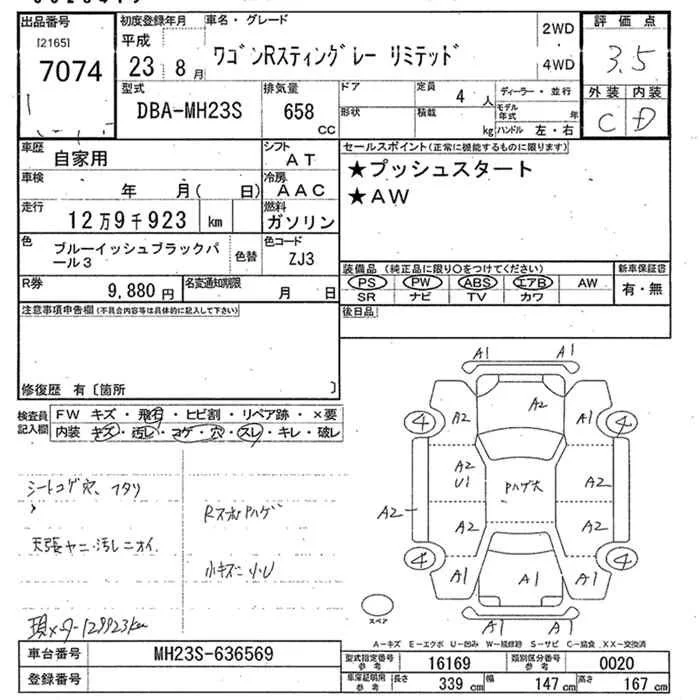 出品番号 初度登録年月 車名・グレード 2WD 評価点
[2165] 平成 ワゴンRスティングレー リミテッド 3.5
7074 23年 8月 4WD 外装 内装
型式 排気量 ドア 定員 4人 ディーラー・並行 C D
DBA-MH23S 658 CC 形状 積載 kg モデル年式 年
ハンドル 左・右
車歴 自家用 シフト AT セールスポイント(正常に機能するものに限ります)
車検 年 月( 日) 冷房 AAC ★プッシュスタート
走行 12万9千923 km 燃料 ガソリン ★AW
色 ブルーイッシュブラックパール3 色替 色コード ZJ3
装備品 (純正品に限り○をつけてください) 新車保証書
R券 9,880円 名変通知期限 月 日 PS PW ABS エアB AW 有・無
SR ナビ TV カワ
注意事項申告欄(不具合内容等は具体的に記入して下さい) 後日品
修復歴 有〔箇所 〕
検査員記入欄 FW キズ・飛石・ヒビ割・リペア跡・×要
内装 キズ・汚レ・コゲ・穴・スレ・キレ・破レ
シートコゲ穴、
天張ヤニ・汚レニオイ
小キズ
A1 A1
4 A2 A2 A1 4
A2 U1 Pハゲ大 A2
A2 A2 A2
4 A1 A1 A1 4
スペア A1 A1
A-キズ E-エクボ U-凹み W-補修跡 S-サビ C-腐食 XX-交換済
車台番号 MH23S-636569 型式指定番号 参考 16169 類別区分番号 参考 0020
登録番号 車庫証明用 参考 長さ 339cm 幅 147cm 高さ 167cm